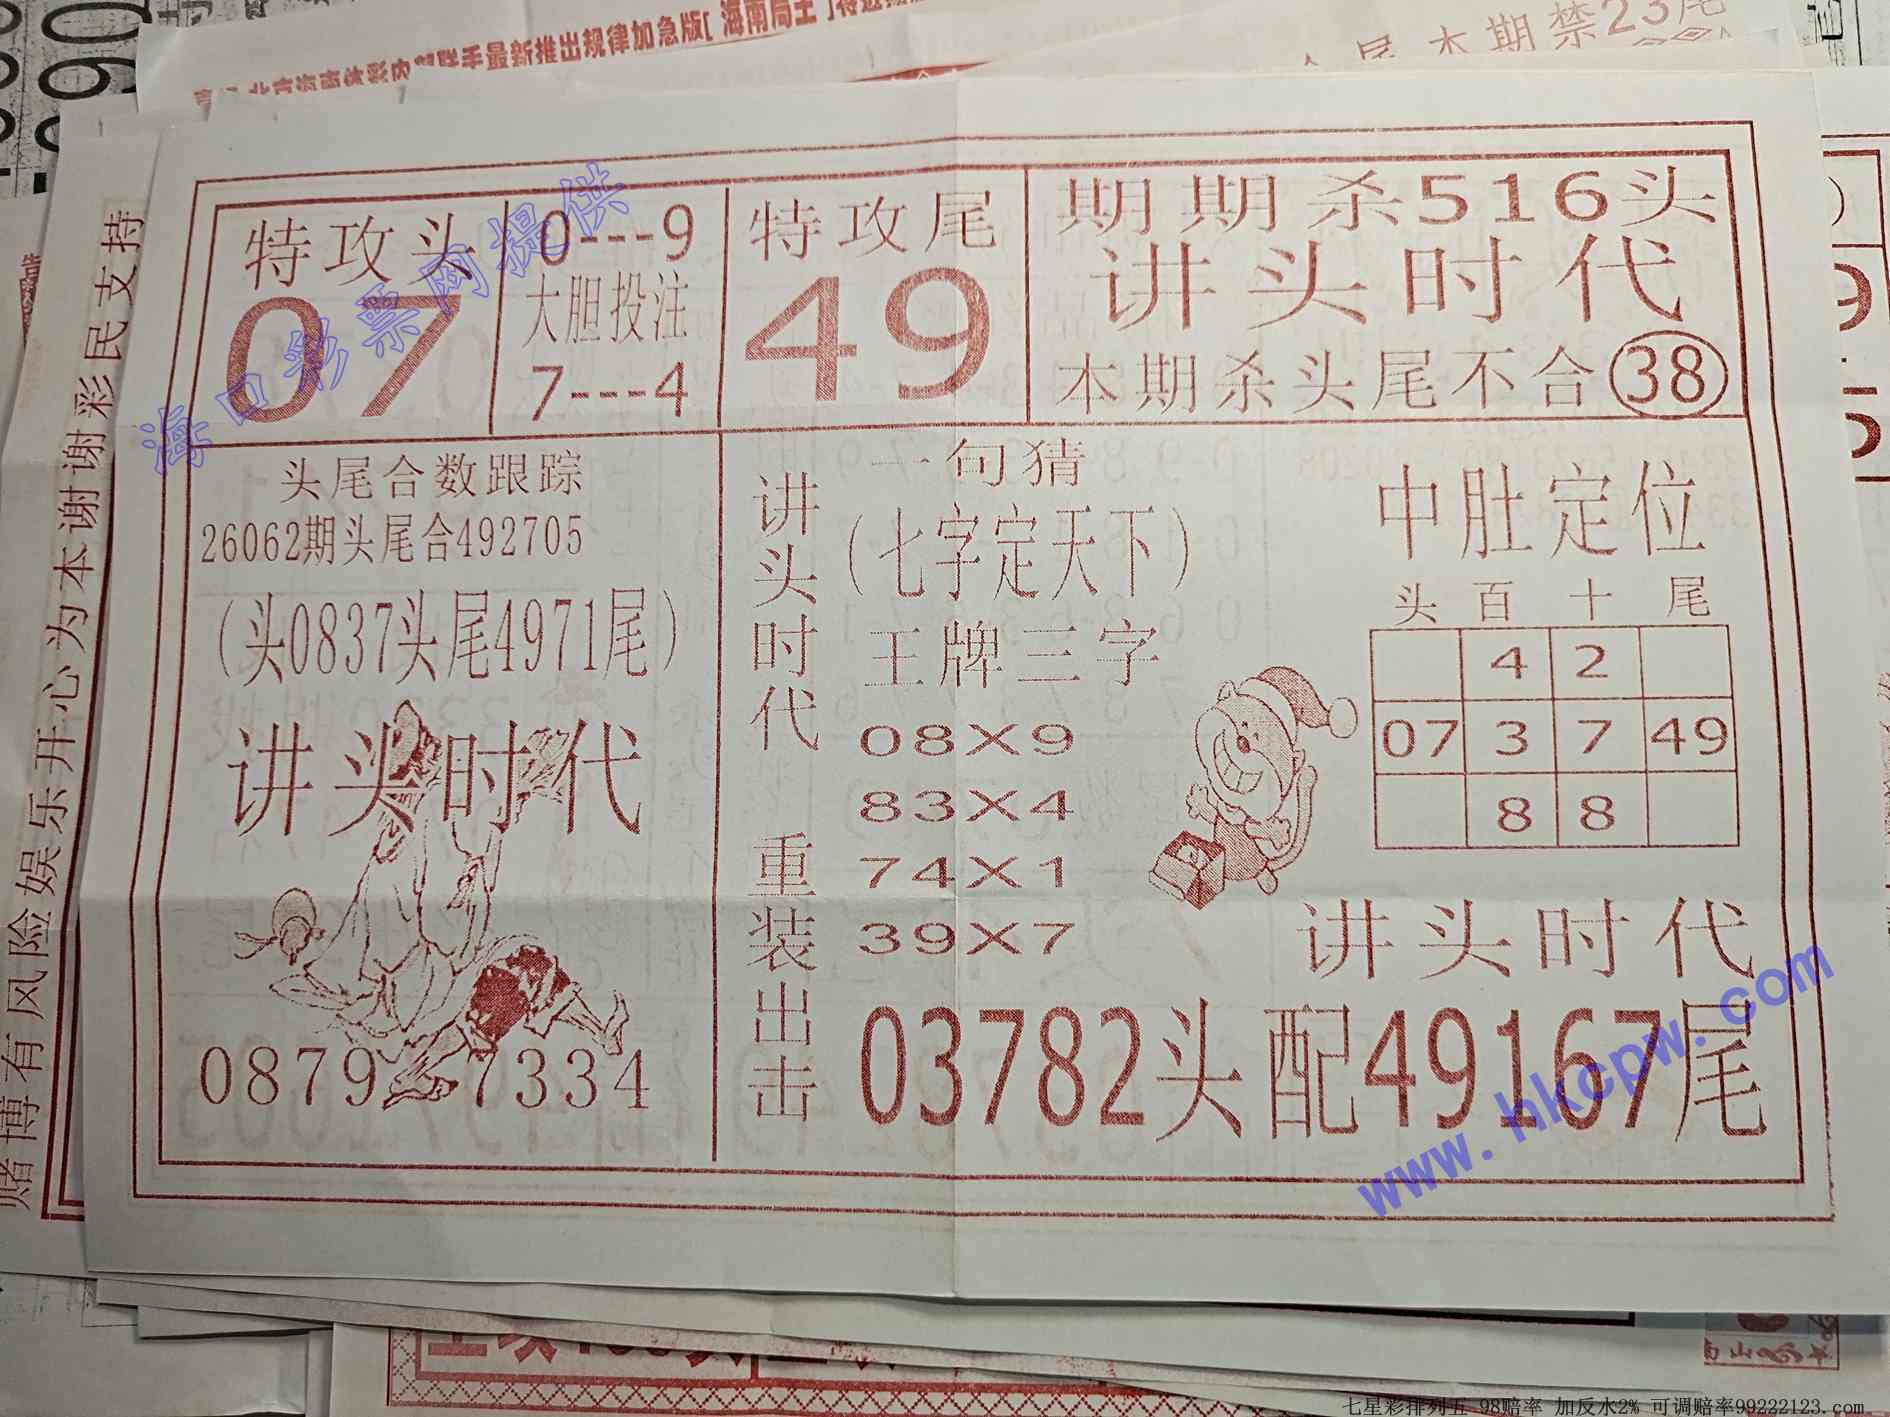 最新推出规律加急版[海南局王]
本期禁23尾
告
赌博有风险娱乐开心为本谢谢彩民支持
特攻头
07
0---9
大胆投注
7---4
特攻尾
49
期期杀516头
讲头时代
本期杀头尾不合38
头尾合数跟踪
26062期头尾合492705
(头0837头尾4971尾)
讲头时代
0879 7334
讲头时代
重装出击
一句猜
(七字定天下)
王牌三字
08X9
83X4
74X1
39X7
中肚定位
头 百 十 尾
4 2
07 3 7 49
8 8
讲头时代
03782头配49167尾
海口彩票网提供
www.hkcpw.com
七星彩排列五 98赔率 加反水2% 可调赔率99222123.com